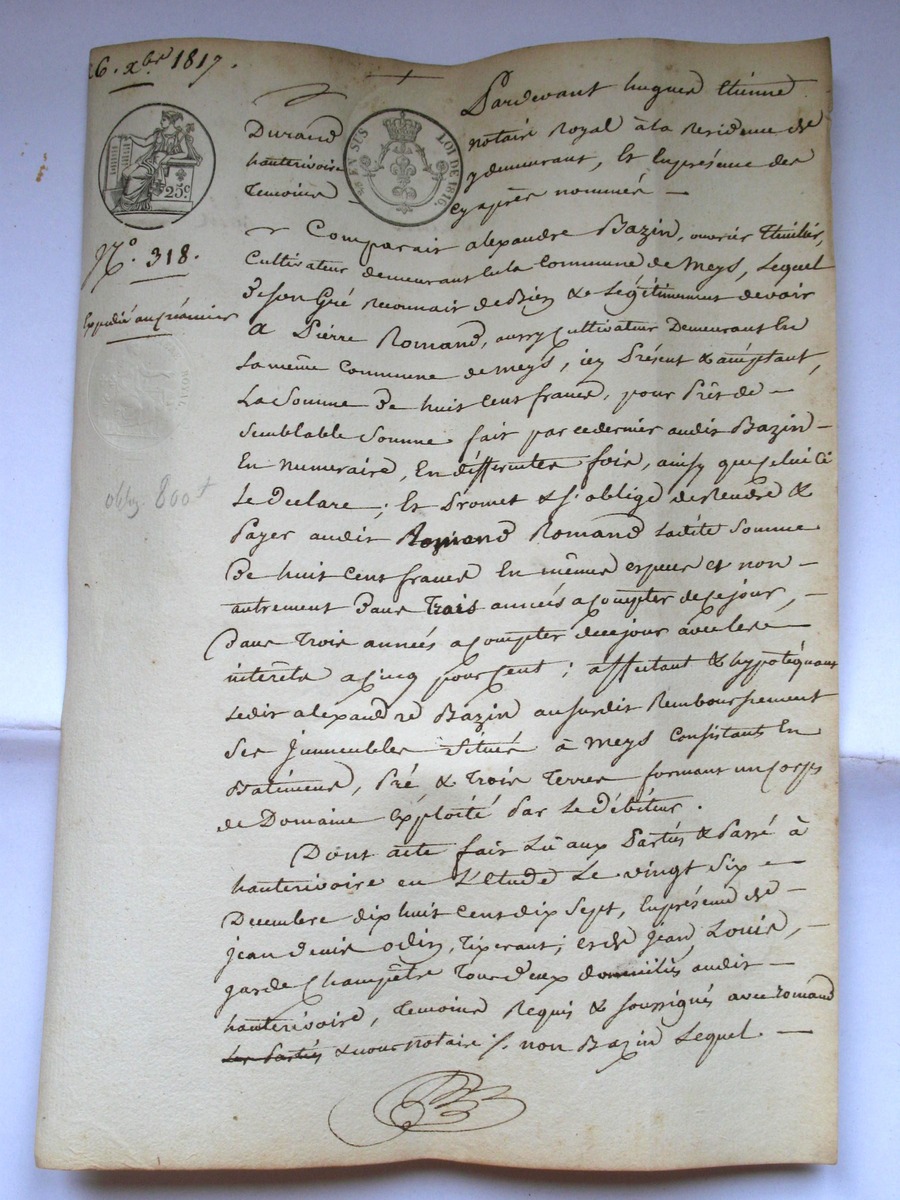 26. xbre 1817.
25c
EN SUS LOI DE 1816.
N.° 318.
Expedié au Créancier
ROYAL
oblig. 800 +
Pardevant hugues Etienne
Durand notaire Royal à la Residence de
hauterivoire y demeurant, Et En présence des
temoins cy après nommés
Comparait alexandre Bazin, ouvrier
Cultivateur demeurant En la Commune de Meys, Lequel
De son Gré Reconnait de Bien & Légitimement devoir
A Pierre Romand, aussy Cultivateur Demeurant En
la même Commune de Meys, icy Présent & acceptant,
La Somme De huit Cent francs, pour Prêt de
Semblable Somme fait par ce dernier audit Bazin
En numeraire, En differentes fois, ainsy que celui ci
Le declare ; Et Promet & s'oblige de Rendre &
Payer audit Romand Romand Ladite Somme
De huit Cent francs En mêmes especes et non
autrement Dans Trois années a Compter de ce jour,
Dans Trois années a Compter de ce jour avec les
intérêts a Cinq pour Cent ; affectant & hypotéquant
Ledit alexandre Bazin au susdit Remboursement
Ses Immeubles Situés à Meys Consistants En
Batiments, Pré, & Trois Terres formant un Corps
de Domaine Exploité Par Le Débiteur.
Dont acte fait Lû aux Parties & Passé à
hauterivoire en L'Etude Le vingt Six
Decembre dix huit Cent dix Sept, En présence de
jean denis odin, tixerant ; et de Jean Louis,
garde Champêtre Tous deux domiciliés audit
hauterivoire, Temoins Requis & soussignés avec romand
Les Parties & nous notaire /. non Bazin Lequel